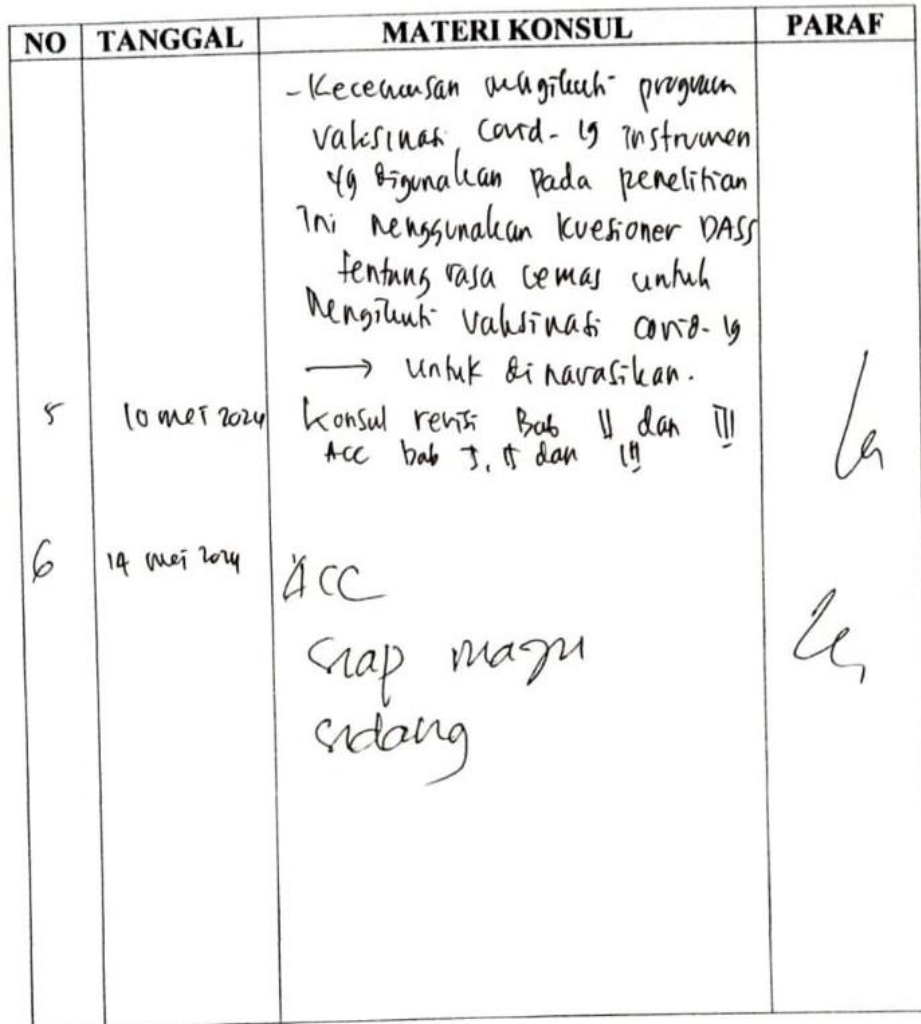 NO TANGGAL MATERI KONSUL PARAF
- Kecemasan mengikuti program
vaksinasi Covid-19 instrumen
yg digunakan pada penelitian
ini menggunakan kuesioner DASS
tentang rasa cemas untuk
mengikuti vaksinasi covid-19
→ untuk dinarasikan.
5 10 mei 2024 Konsul revisi Bab II dan III
ACC bab I, II dan III
6 14 mei 2024 ACC
siap maju
sidang